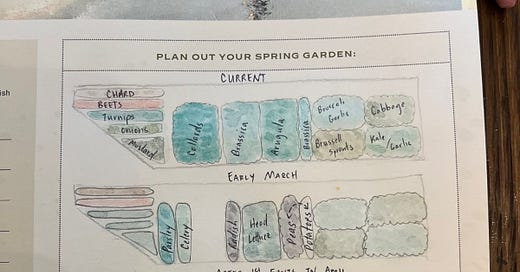 PLAN OUT YOUR SPRING GARDEN:
CURRENT
CHARD
BEETS
Turnips
onions
Mustard
Collards
Brassica
Arugula
Brassica
Broccoli
Garlic
Cabbage
Brussell
Sprouts
Kale /
Garlic
EARLY MARCH
Parsley
Celery
Radish
Head
Lettuce
Peas
Potatoes